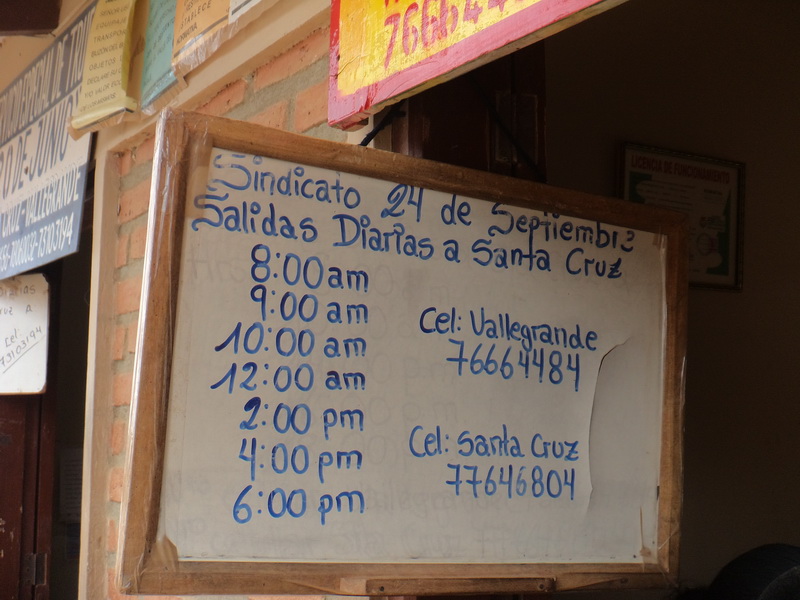 Sindicato 24 de Septiembre
Salidas Diarias a Santa Cruz
8:00 am
9:00 am
10:00 am
12:00 am
2:00 pm
4:00 pm
6:00 pm
Cel: Vallegrande
76664484
Cel: Santa Cruz
77646804
LICENCIA DE FUNCIONAMIENTO
DE JUNIO
CRUZ - VALLEGRANDE
73103194
Cel:
73103194